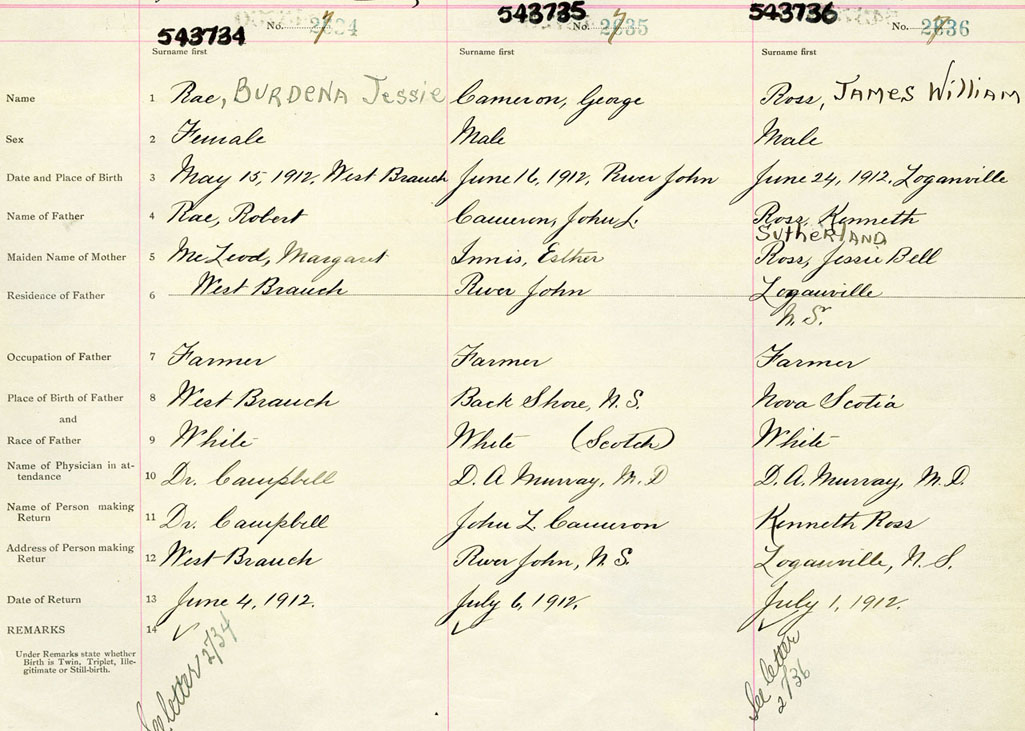 543734 No. 2734
543735 No. 2735
543736 No. 2736
Surname first Surname first Surname first
Name 1 Rae, BURDENA Jessie Cameron, George Ross, JAMES William
Sex 2 Female Male Male
Date and Place of Birth 3 May 15, 1912. West Branch June 16, 1912, River John June 24, 1912. Loganville
Name of Father 4 Rae, Robert Cameron, John L. Ross, Kenneth
SUTHERLAND
Maiden Name of Mother 5 McLeod, Margaret Innis, Esther Ross, Jessie Bell
Residence of Father 6 West Branch River John Loganville
N.S.
Occupation of Father 7 Farmer Farmer Farmer
Place of Birth of Father 8 West Branch Back Shore, N.S. Nova Scotia
and
Race of Father 9 White White (Scotch) White
Name of Physician in at-
tendance 10 Dr. Campbell D. A Murray, M. D D. A. Murray, M. D.
Name of Person making
Return 11 Dr. Campbell John L Cameron Kenneth Ross
Address of Person making
Retur 12 West Branch River John, N.S. Loganville, N. S.
Date of Return 13 June 4, 1912. July 6, 1912. July 1, 1912.
REMARKS 14 ✓ ✓ ✓
Under Remarks state whether
Birth is Twin, Triplet, Ille-
gitimate or Still-birth.
See letter 2734
See letter
2736